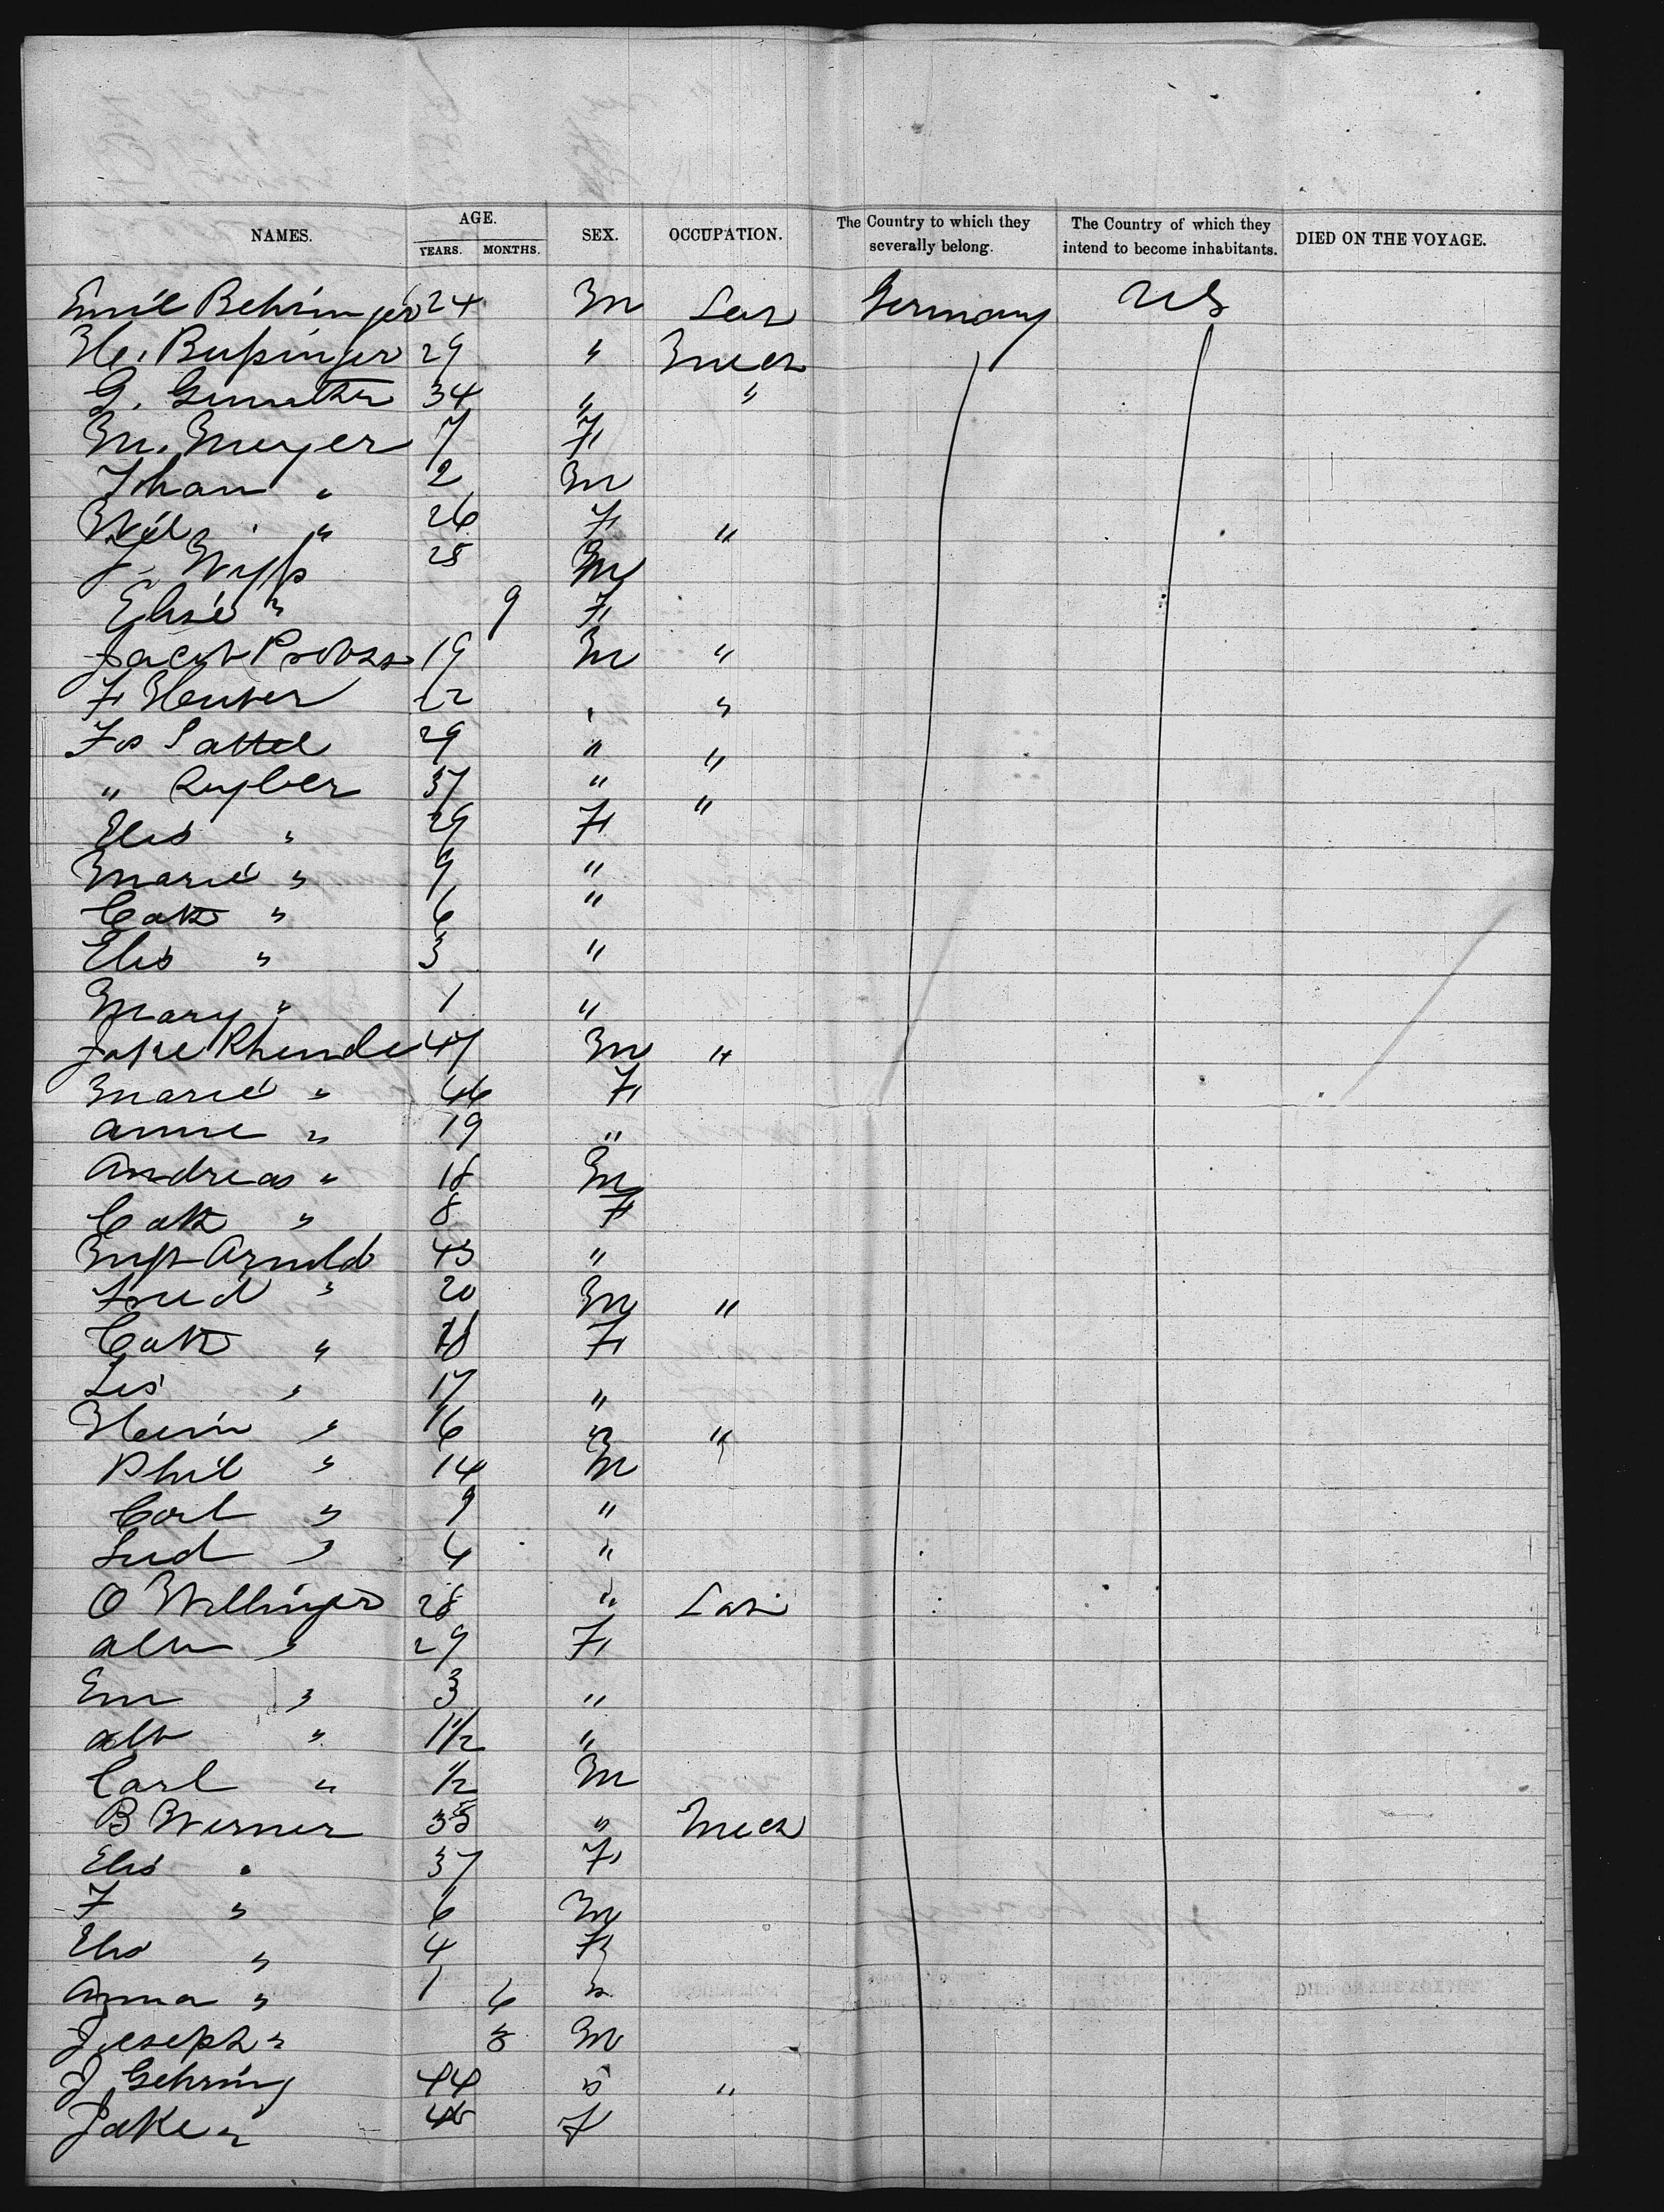 NAMES. AGE. YEARS. MONTHS. SEX. OCCUPATION. The Country to which they severally belong. The Country of which they intend to become inhabitants. DIED ON THE VOYAGE.
Emil Behringer 24 M Germany US
29 " Mech
G. 34 " "
M. Meyer 7 F
Johan " 2 M
" 26 F "
J. Wyss 28 M
Elise " 9 F
Jacob Probst 19 M "
F Huber 22 "
Fr Sattel 29 " "
" 37 " "
Elis " 29 F
Marie " 9 "
Cath " 6 "
Elis " 3 "
Mary " 1 "
47 M "
Marie " 44 F
Anne " 19 "
Andreas " 18 M
Cath " 8 F
Arnold 43 "
Fried " 20 M "
Cath " 18 F
Lis " 17 "
" 16 " "
Phil " 14 M
Carl " 9 "
Lud " 4 "
O Willinger 28 "
" 29 F
Em " 3 "
Alb " 1 1/2 "
Carl " 1/2 M
B Werner 38 " Mech
Elis " 37 F
F " 6 M
Elis " 4 F
Anna " 1 6 "
Joseph " M
J Gehring 44 " "
Jake " F